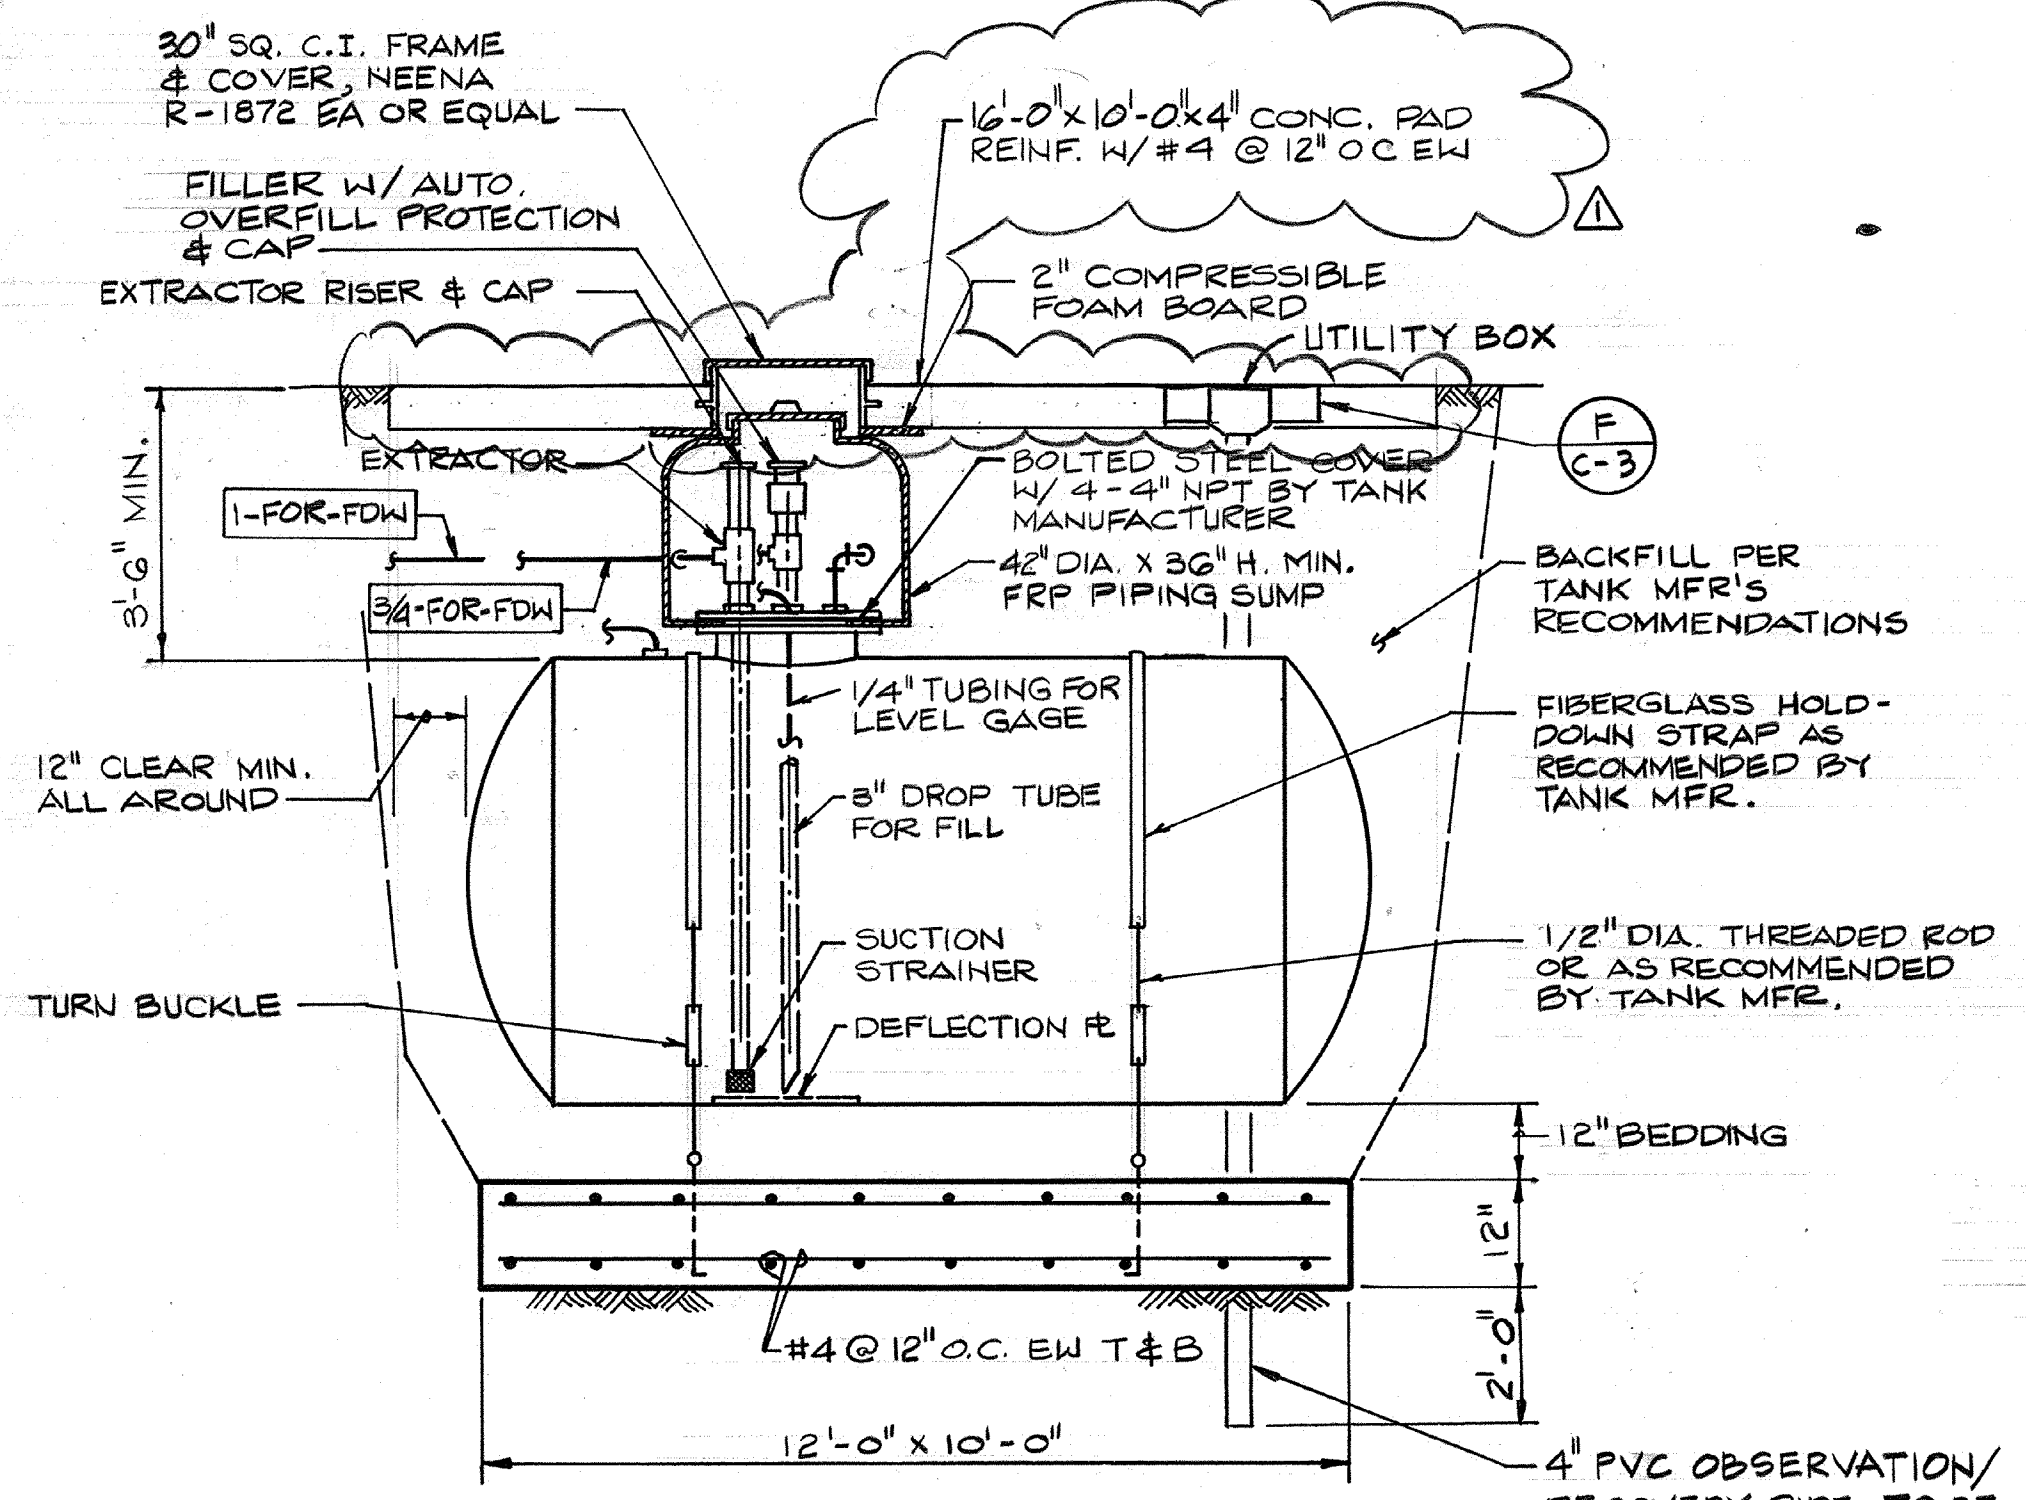 30" SQ. C.I. FRAME
& COVER, NEENA
R-1872 EA OR EQUAL
FILLER W/ AUTO.
OVERFILL PROTECTION
& CAP
EXTRACTOR RISER & CAP
16'-0"x10'-0"x4" CONC. PAD
REINF. W/ #4 @ 12" OC EW
1
2" COMPRESSIBLE
FOAM BOARD
UTILITY BOX
F
C-3
3'-6" MIN.
EXTRACTOR
1-FOR-FDW
3/4-FOR-FDW
BOLTED STEEL COVER
W/ 4-4" NPT BY TANK
MANUFACTURER
42" DIA. X 36" H. MIN.
FRP PIPING SUMP
BACKFILL PER
TANK MFR'S
RECOMMENDATIONS
1/4" TUBING FOR
LEVEL GAGE
FIBERGLASS HOLD-
DOWN STRAP AS
RECOMMENDED BY
TANK MFR.
12" CLEAR MIN.
ALL AROUND
3" DROP TUBE
FOR FILL
SUCTION
STRAINER
1/2" DIA. THREADED ROD
OR AS RECOMMENDED
BY TANK MFR.
TURN BUCKLE
DEFLECTION PL
12" BEDDING
12"
2'-0"
#4 @ 12" O.C. EW T & B
12'-0" X 10'-0"
4" PVC OBSERVATION/